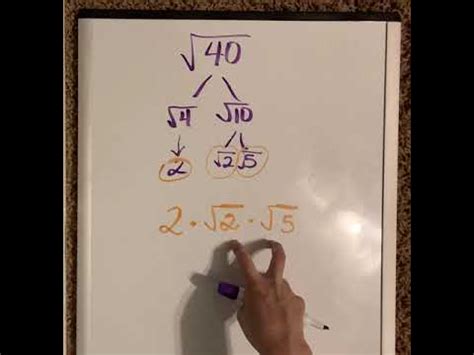 √40
√4 √10
2 √2 √5
2 · √2 · √5